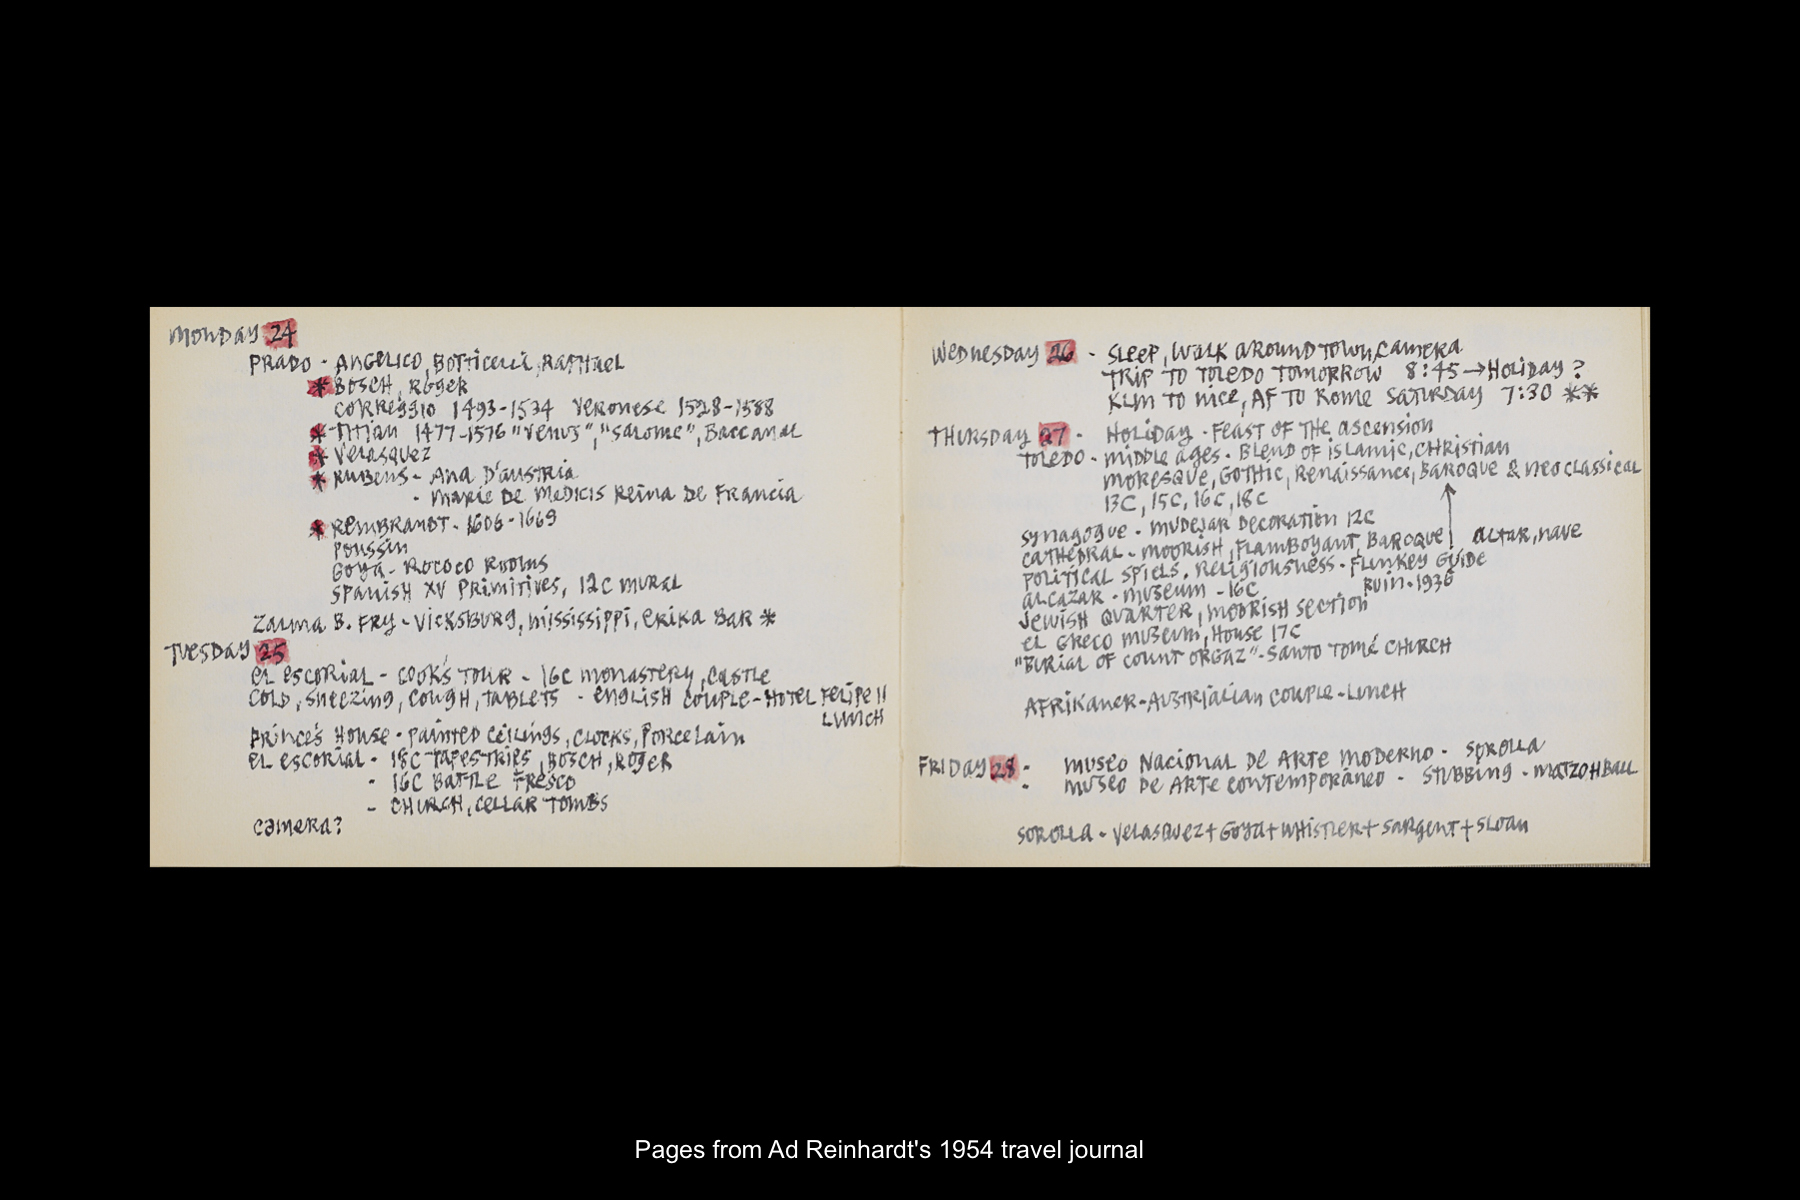 MONDAY 24
PRADO - ANGELICO, BOTTICELLI, RAPHAEL
* BOSCH, ROGER
CORREGGIO 1493-1534 VERONESE 1528-1588
* TITIAN 1477-1576 "VENUS", "SALOME", BACCANAL
* VELASQUEZ
* RUBENS - ANA D'AUSTRIA
- MARIE DE MEDICIS REINA DE FRANCIA
* REMBRANDT - 1606-1669
POUSSIN
GOYA - ROCOCO ROOMS
SPANISH XV PRIMITIVES, 12C MURAL
B. FRY - VICKSBURG, MISSISSIPPI, ERIKA BAR *
TUESDAY 25
EL ESCORIAL - COOK'S TOUR - 16C MONASTERY, CASTLE
COLD, SNEEZING, COUGH, TABLETS - ENGLISH COUPLE - HOTEL FELIPE II
LUNCH
PRINCE'S HOUSE - PAINTED CEILINGS, CLOCKS, PORCELAIN
EL ESCORIAL - 18C TAPESTRIES, BOSCH, ROGER
- 16C BATTLE FRESCO
- CHURCH, CELLAR TOMBS
CAMERA?
WEDNESDAY 26 - SLEEP, WALK AROUND TOWN, CAMERA
TRIP TO TOLEDO TOMORROW 8:45 → HOLIDAY ?
KLM TO NICE, AF TO ROME SATURDAY 7:30 **
THURSDAY 27 - HOLIDAY - FEAST OF THE ASCENSION
TOLEDO - MIDDLE AGES - BLEND OF ISLAMIC, CHRISTIAN
MORESQUE, GOTHIC, RENAISSANCE, BAROQUE & NEOCLASSICAL
13C, 15C, 16C, 18C
SYNAGOGUE - MUDEJAR DECORATION 12C
CATHEDRAL - MOORISH, FLAMBOYANT, BAROQUE ↑ ALTAR, NAVE
POLITICAL SPIELS, RELIGIOUSNESS - FLUNKEY GUIDE
ALCAZAR - MUSEUM - 16C RUIN - 1936
JEWISH QUARTER, MOORISH SECTION
EL GRECO MUSEUM, HOUSE 17C
"BURIAL OF COUNT ORGAZ" - SANTO TOMÉ CHURCH
AFRIKANER - AUSTRIALIAN COUPLE - LUNCH
FRIDAY 28 - MUSEO NACIONAL DE ARTE MODERNO - SOROLLA
- MUSEO DE ARTE CONTEMPORANEO - STUBBING - MATZOHBALL
SOROLLA - VELASQUEZ + GOYA + WHISTLER + SARGENT + SLOAN
Pages from Ad Reinhardt's 1954 travel journal